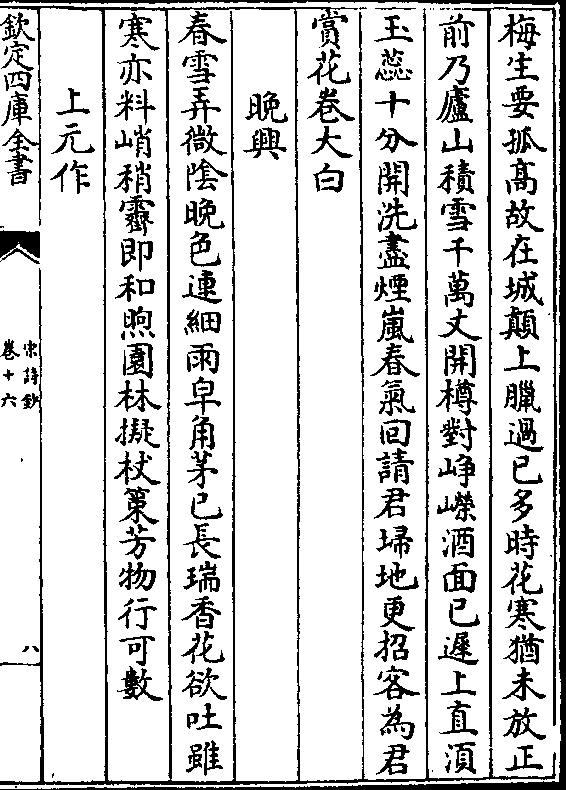 梅生要孤高故在城顛上臘過已多時花寒猶未放正
前乃廬山積雪千萬丈開樽對崢嶸酒面已遲上直須
玉蕊十分開洗盡煙嵐春氣回請君埽地更招客為君
賞花卷大白
晚興
春雪弄微陰晚色連細雨皁角茅已長瑞香花欲吐雖
寒亦料峭稍霽即和煦園林擬杖策芳物行可數
上元作
欽定四庫全書
宋詩鈔
卷十六
八